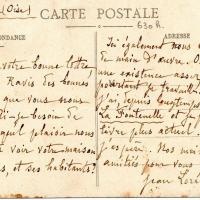 (Oise)
CARTE POSTALE
630 h.
ONDANCE
ADRESSE
votre bonne lettre
Ravis des bonnes
que vous nous
besoin de
quel plaisir nous
voir votre maison
s, et ses habitants!
Ici également nous
de main d'œuvre.
une existence assez
pourtant je travaille
j'ai, depuis longtemps
La Fontenelle et
livre plus actuel
j'espère. Nos
amitiés pour vous
Jean